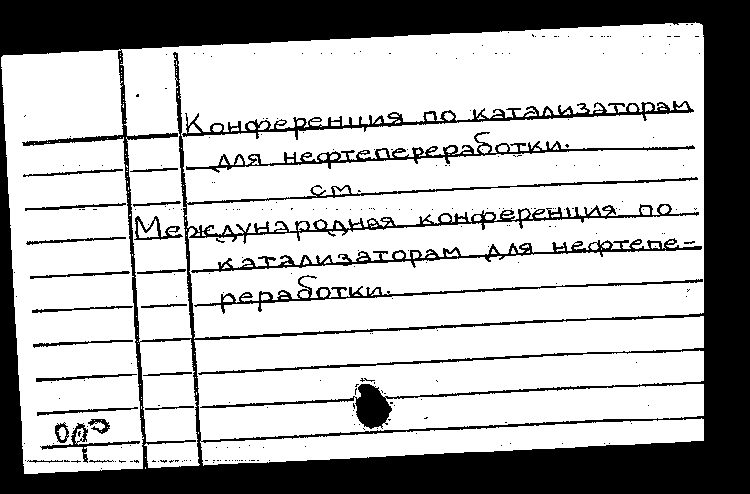 Конференция по катализаторам
для нефтепереработки.
см.
Международная конференция по
катализаторам для нефтепе-
реработки.